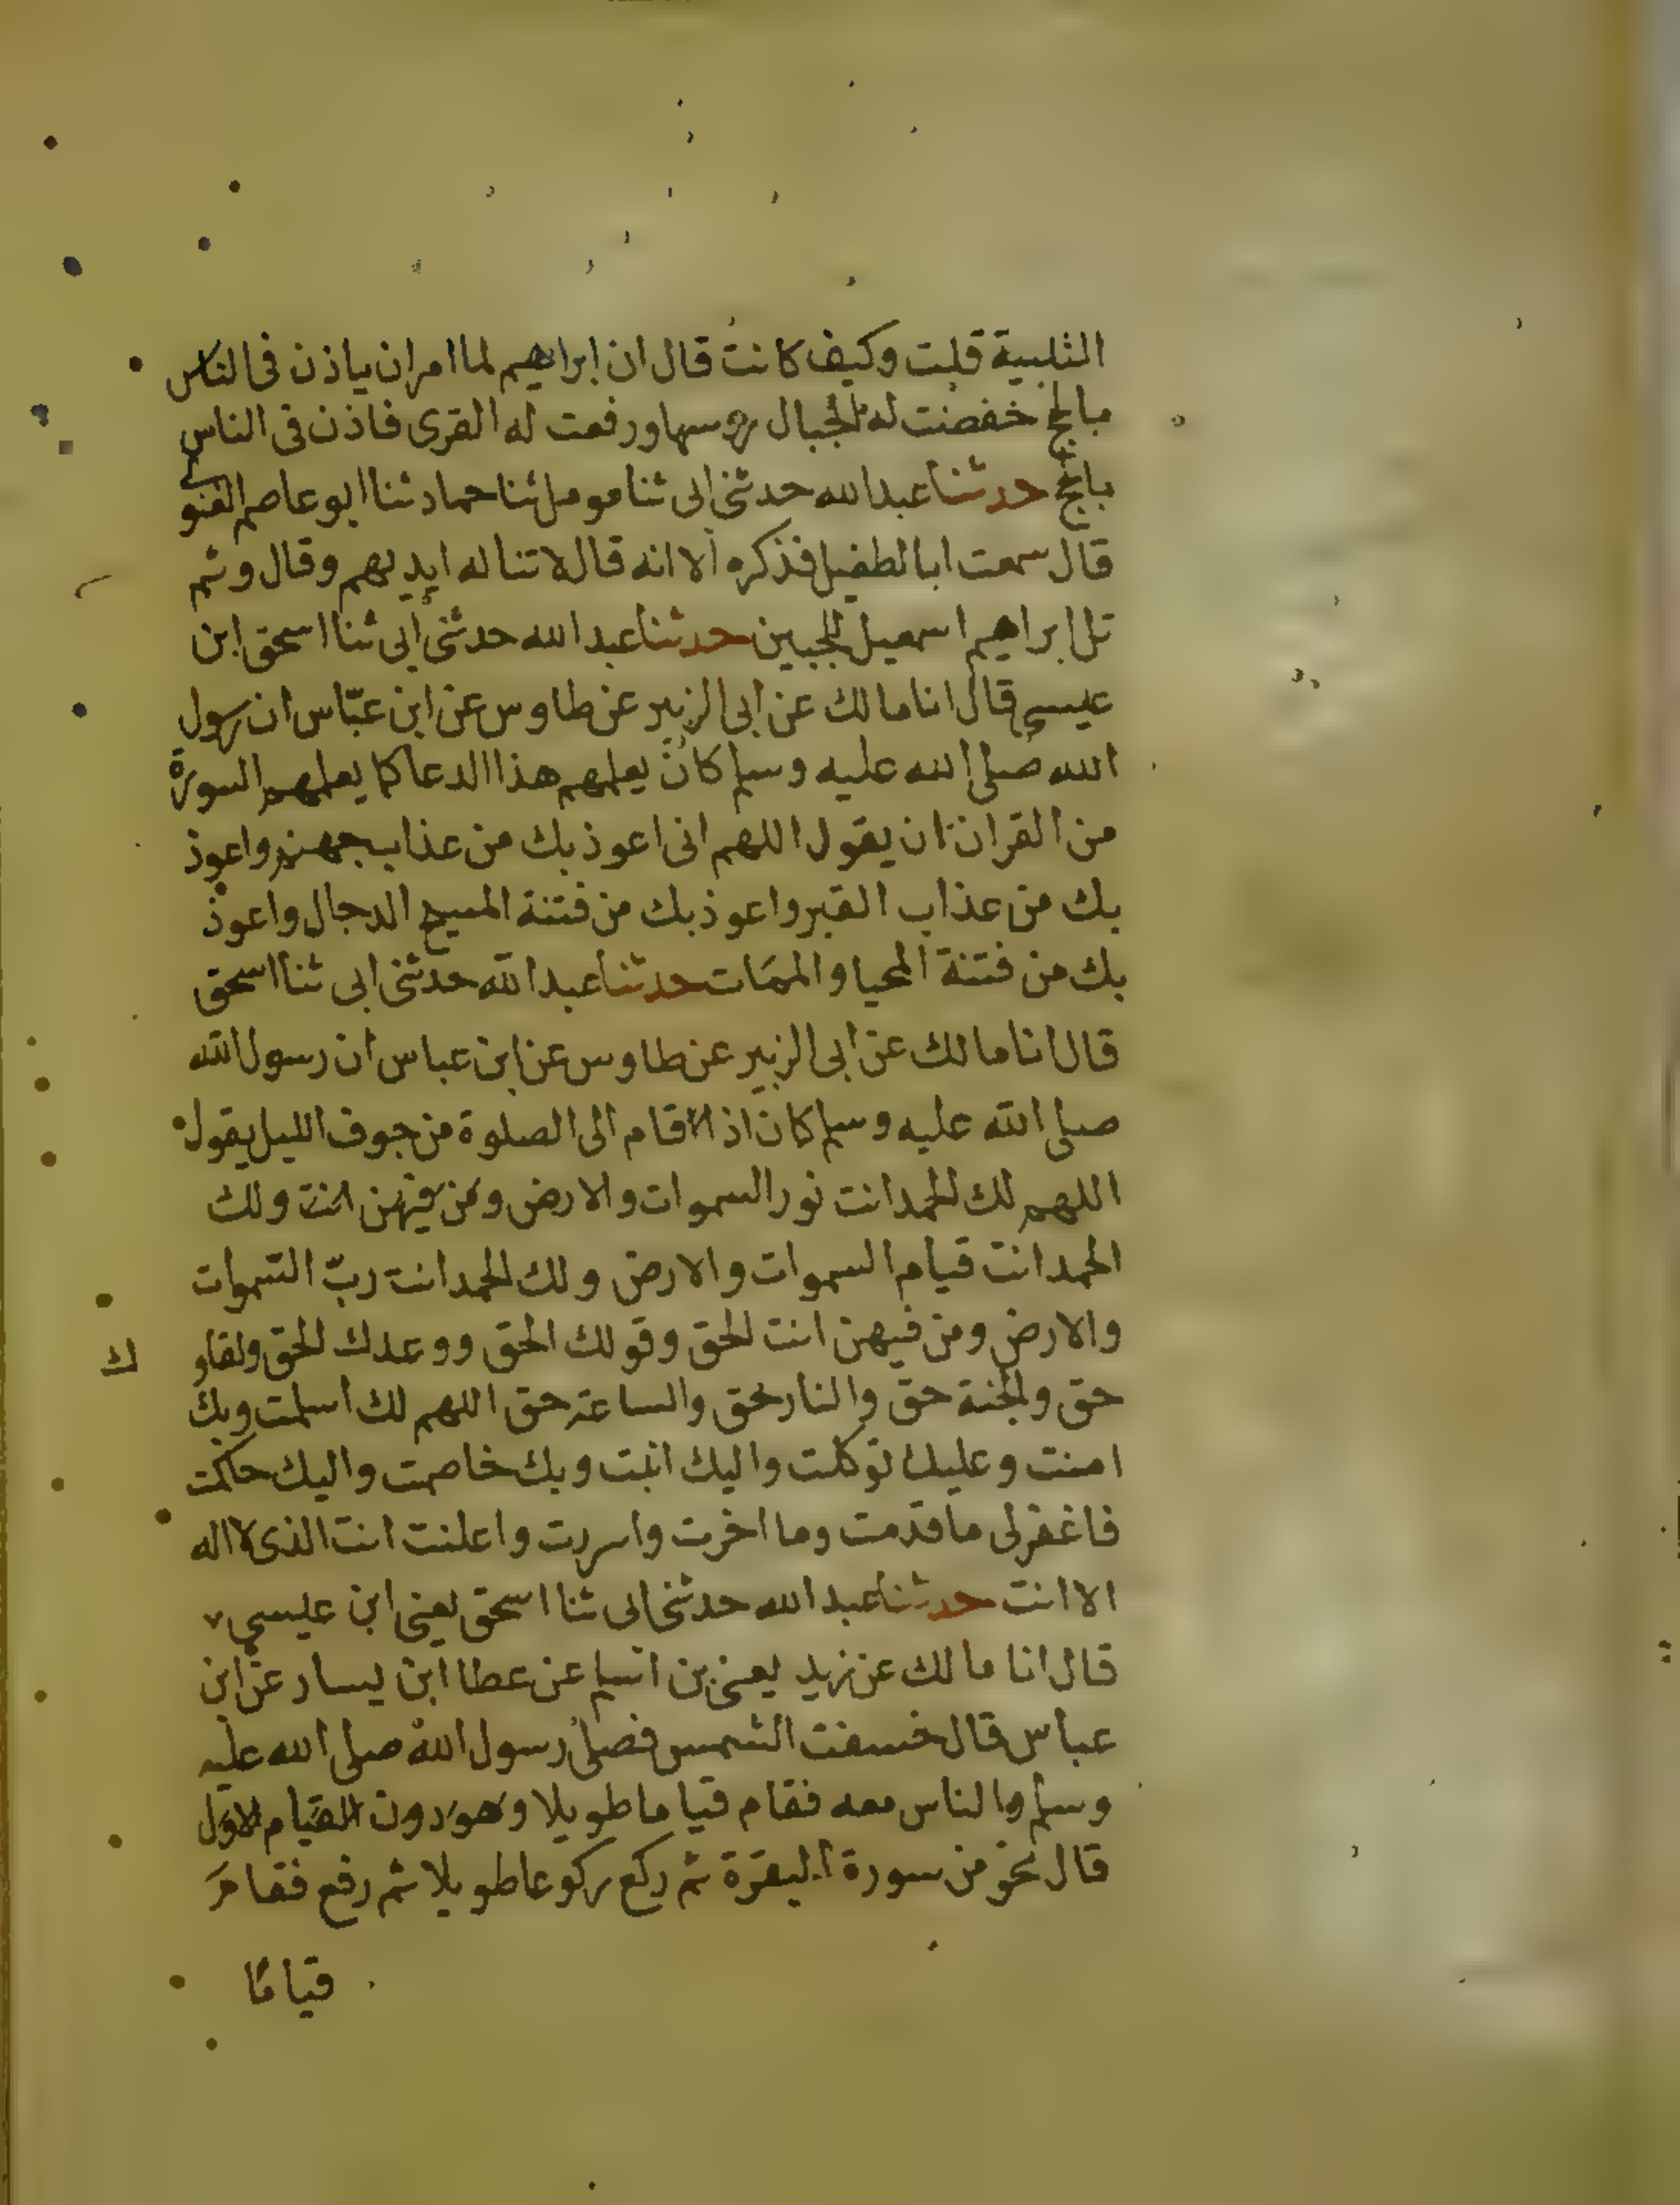 التلبية قلت وكيف كانت قال ان ابراهيم لما امر ان ياذن فى الناس
بالحج خفضت له الجبال رءوسها ورفعت له القرى فاذن فى الناس
بالحج حدثنا عبد الله حدثنى ابى ثنا مومل ثنا حماد ثنا ابو عاصم الغنوى
قال سمعت ابا الطفيل فذكره الا انه قال لا تناله ايديهم وقال وثم
تل ابراهيم اسمعيل للجبين حدثنا عبد الله حدثنى ابى ثنا اسحق ابن
عيسى قال انا مالك عن ابى الزبير عن طاوس عن ابن عبّاس ان رسول
الله صلى الله عليه وسلم كان يعلمهم هذا الدعا كما يعلمهم السورة
من القران ان يقول اللهم انى اعوذ بك من عذاب جهنم واعوذ
بك من عذاب القبر واعوذ بك من فتنة المسيح الدجال واعوذ
بك من فتنة المحيا والممات حدثنا عبد الله حدثنى ابى ثنا اسحق
قال انا مالك عن ابى الزبير عن طاوس عن ابن عباس ان رسول الله
صلى الله عليه وسلم كان اذا قام الى الصلوة من جوف الليل يقول
اللهم لك الحمد انت نور السموات والارض ومن فيهن انت ولك
الحمد انت قيام السموات والارض ولك الحمد انت ربّ السموات
والارض ومن فيهن انت الحق وقولك الحق ووعدك الحق ولقاو
ك
حق والجنة حق والنار حق والساعة حق اللهم لك اسلمت وبك
امنت وعليك توكلت واليك انبت وبك خاصمت واليك حاكمت
فاغفر لى ما قدمت وما اخرت واسررت واعلنت انت الذى لا اله
الا انت حدثنا عبد الله حدثنى ابى ثنا اسحق يعنى ابن عيسى
قال انا مالك عن زيد يعنى بن اسلم عن عطا ابن يسار عن ابن
عباس قال خسفت الشمس فصلى رسول الله صلى الله عليه
وسلم والناس معه فقام قياما طويلا وهو دون القيام الاول
قال نحو من سورة البقرة ثم ركع ركوعا طويلا ثم رفع فقام
قيامًا